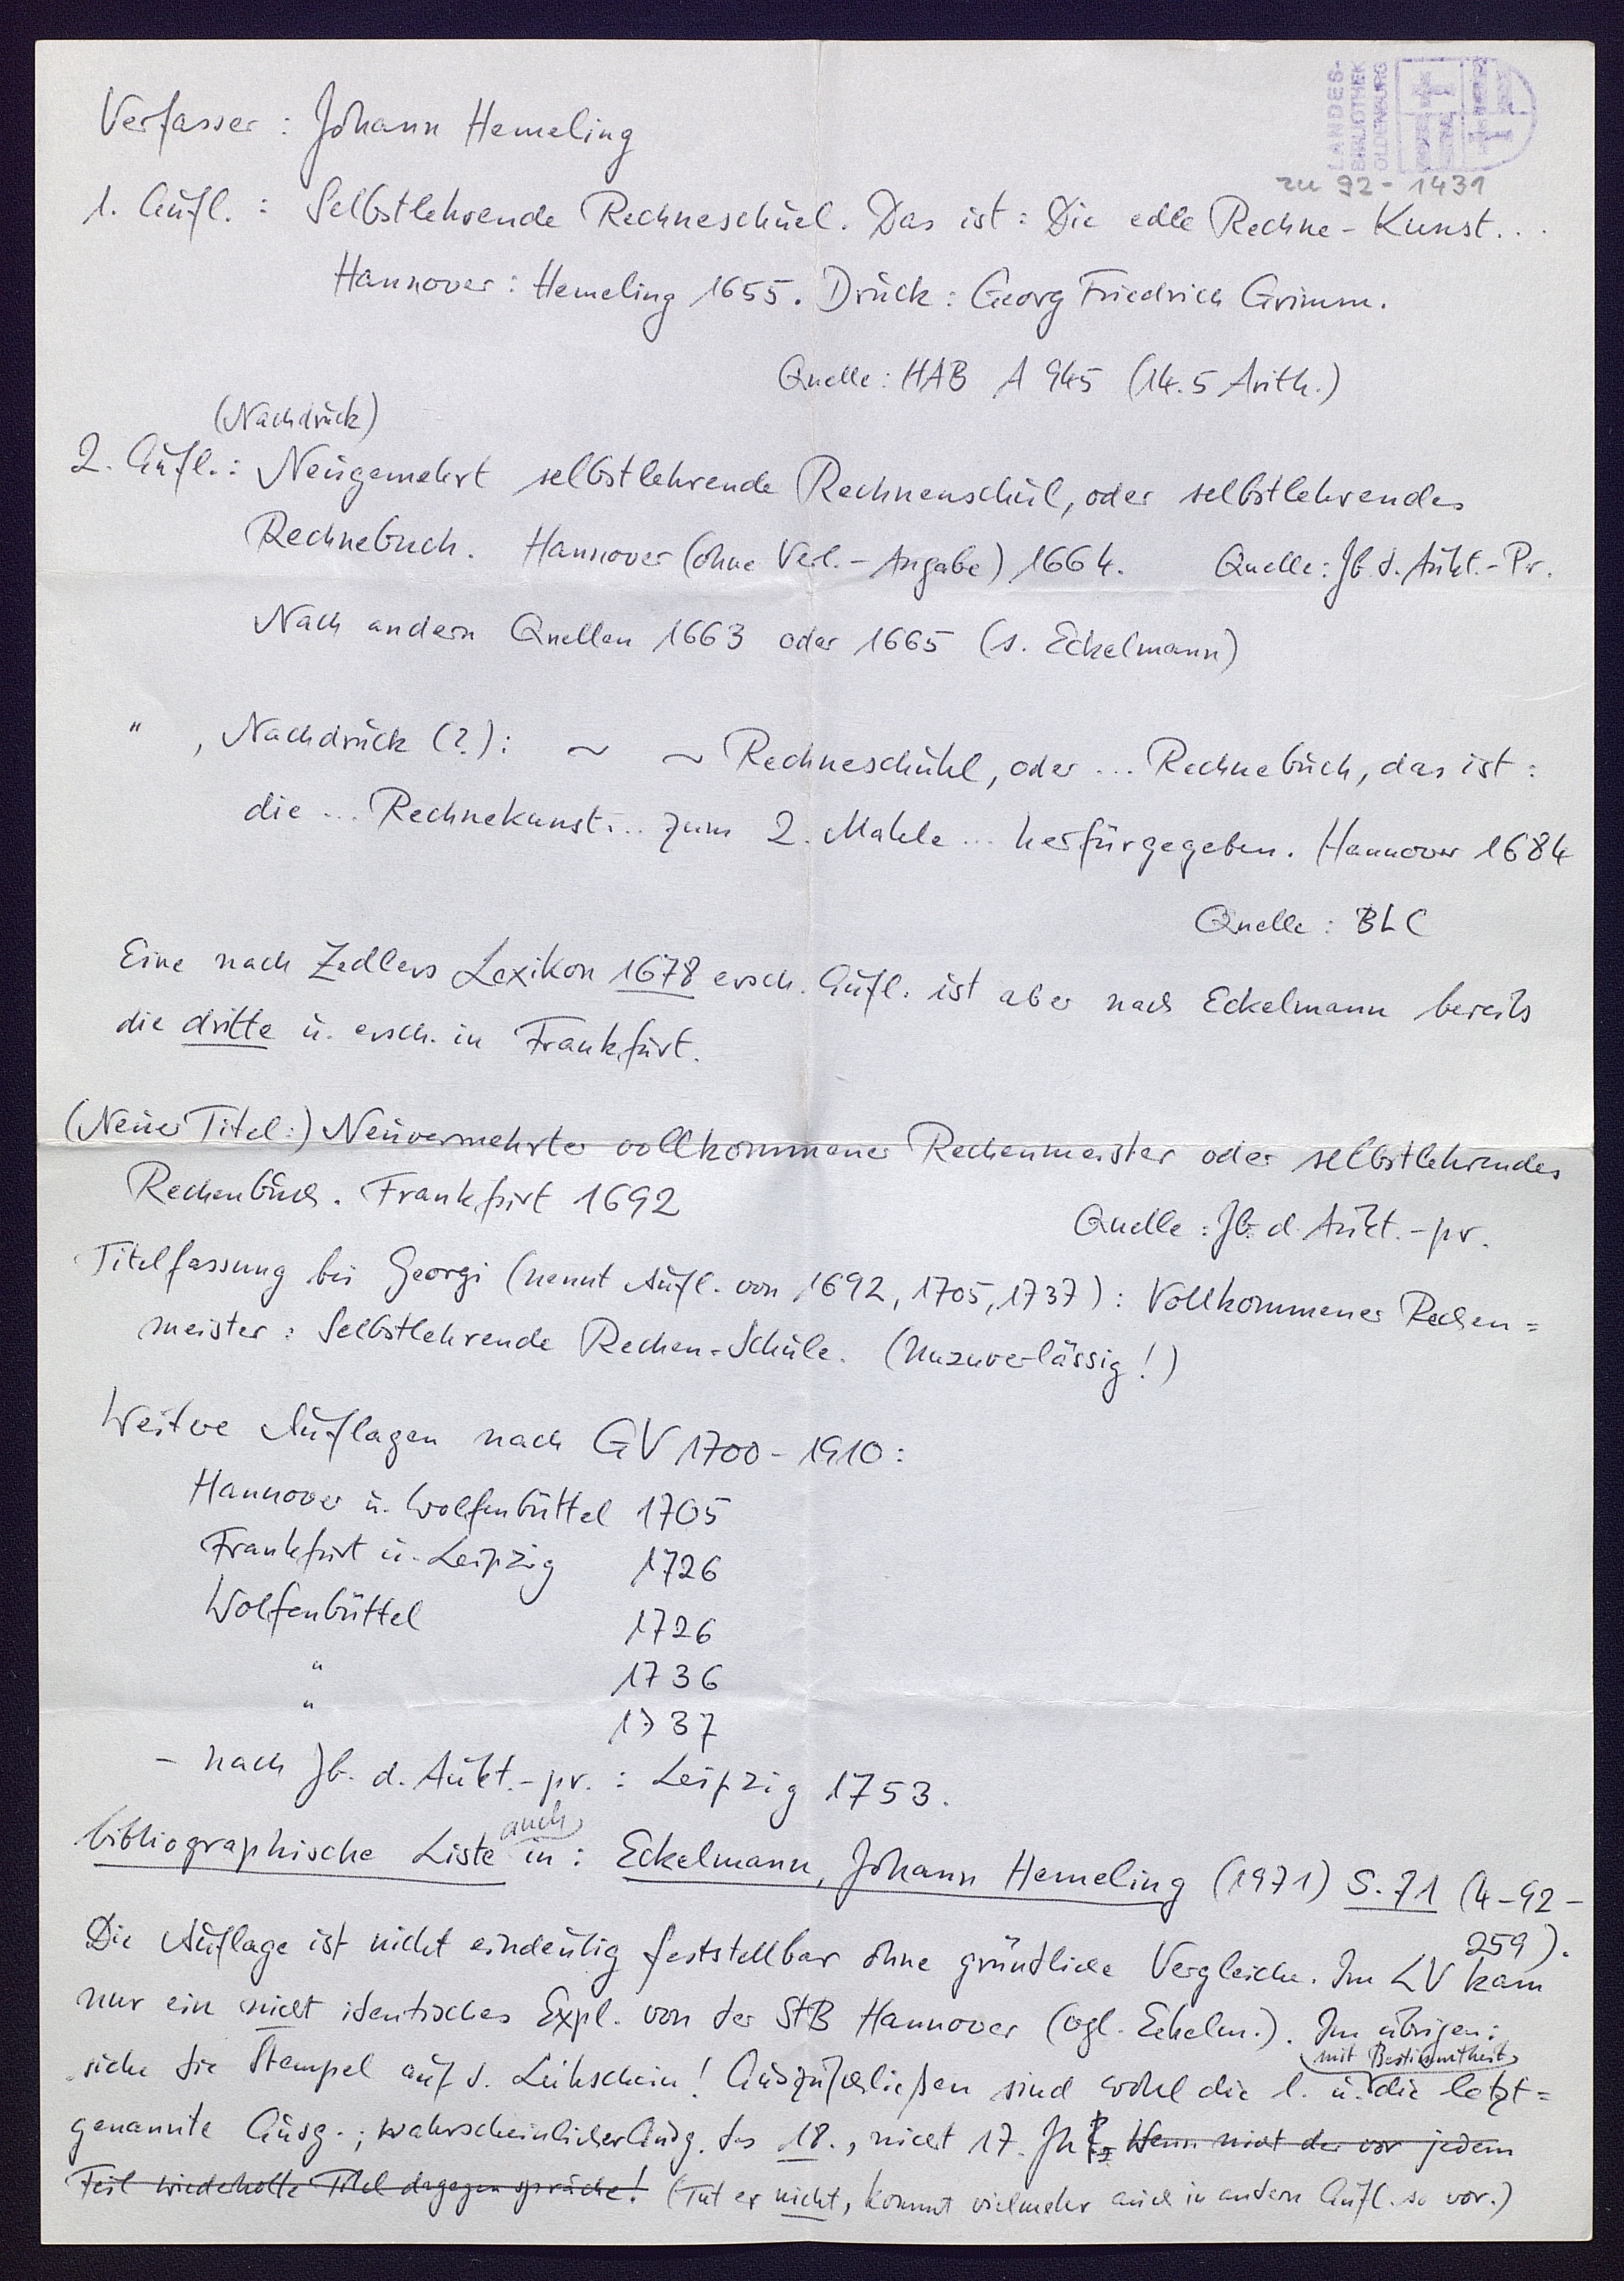 LANDES-
BIBLIOTHEK
OLDENBURG
zu 92-1431
Verfasser: Johann Hemeling
1. Aufl.: Selbstlehrende Rechneschuel. Das ist: Die edle Rechne-Kunst...
Hannover: Hemeling 1655. Druck: Georg Friedrich Grimm.
Quelle: HAB A 945 (14.5 Arith.)
(Nachdruck)
2. Aufl.: Neugemehrt selbstlehrende Rechnenschul, oder selbstlehrendes
Rechnebuch. Hannover (ohne Verl.-Angabe) 1664. Quelle: Jb. d. Aukt.-Pr.
Nach andern Quellen 1663 oder 1665 (s. Eckelmann)
" , Nachdruck (?): ~ ~ Rechneschuhl, oder ... Rechnebuch, das ist:
die ... Rechnekunst... zum 2. Mahle ... herfürgegeben. Hannover 1684
Quelle: BLC
Eine nach Zedlers Lexikon 1678 ersch. Aufl. ist aber nach Eckelmann bereits
die dritte u. ersch. in Frankfurt.
(Neuer Titel:) Neuvermehrter vollkommener Rechenmeister oder selbstlehrendes
Rechenbuch. Frankfurt 1692
Quelle: Jb. d. Aukt.-pr.
Titelfassung bei Georgi (nennt Aufl. von 1692, 1705, 1737): Vollkommener Rechen=
meister: Selbstlehrende Rechen-Schule. (Unzuverlässig!)
Weitre Auflagen nach GV 1700-1910:
Hannover u. Wolfenbüttel 1705
Frankfurt u. Leipzig 1726
Wolfenbüttel 1726
" 1736
" 1737
- nach Jb. d. Aukt.-pr.: Leipzig 1753.
bibliographische Liste auch in: Eckelmann, Johann Hemeling (1971) S. 71 (4-92-
259).
Die Auflage ist nicht eindeutig feststellbar ohne gründliche Vergleiche. Im LV kam
nur ein nicht identisches Expl. von der StB Hannover (vgl. Eckelm.). Im übrigen:
siehe die Stempel auf d. Leihschein! Auszuschließen sind wohl die 1. u. mit Bestimmtheit die letzt=
genannte Ausg.; wahrscheinlicher Ausg. des 18., nicht 17. Jh. Wenn nicht der vor jedem
Teil wiederholte Titel dagegen spräche! (Tut er nicht, kommt vielmehr auch in andern Aufl. so vor.)